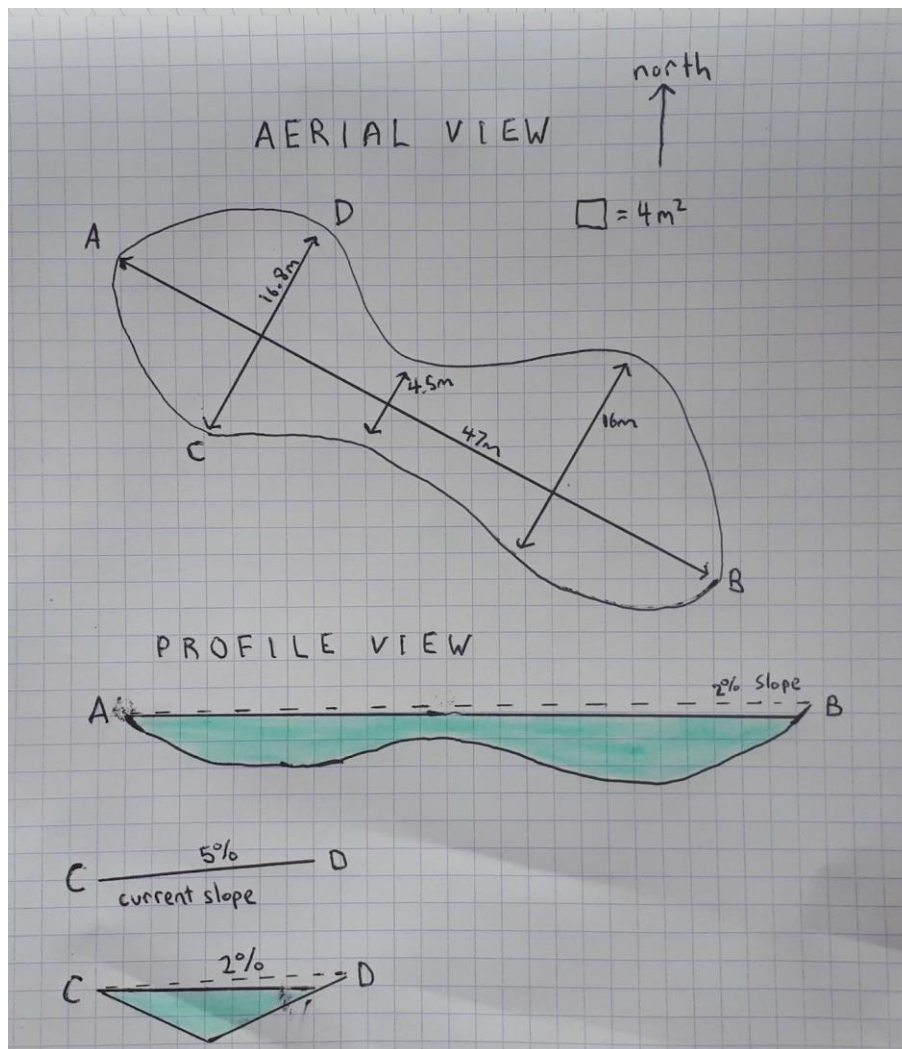 north
AERIAL VIEW
□ = 4m²
A
D
16.8m
4.5m
47m
16m
C
B
PROFILE VIEW
2% slope
A
B
5%
C
D
current slope
2%
C
D